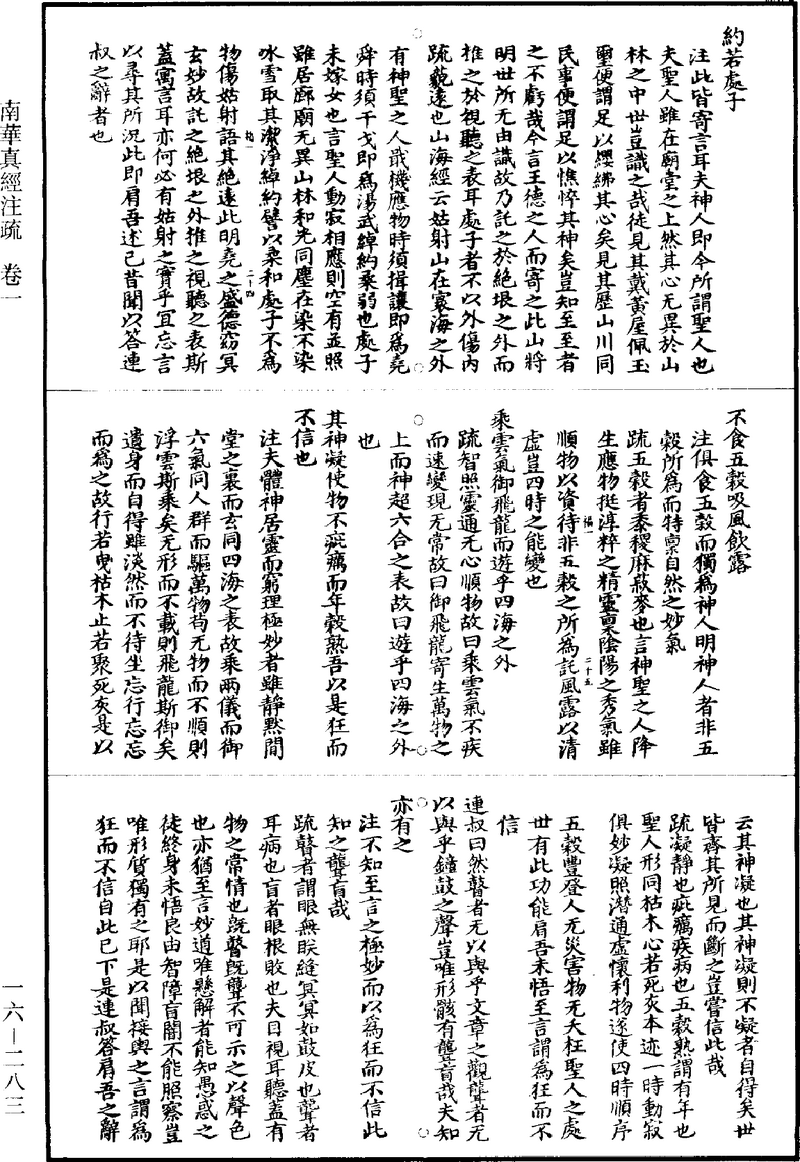 約若處子
注此皆寄言耳夫神人即今所謂聖人也
夫聖人雖在廟堂之上然其心无異於山
林之中世豈識之哉徒見其戴黃屋佩玉
璽便謂足以纓紼其心矣見其歷山川同
民事便謂足以憔悴其神矣豈知至至者
之不虧哉今言王德之人而寄之此山將
明世所无由識故乃託之於絕垠之外而
推之於視聽之表耳處子者不以外傷內
疏藐遠也山海經云姑射山在寰海之外
有神聖之人戢機應物時須揖讓即為堯
舜時須干戈即為湯武綽約柔弱也處子
未嫁女也言聖人動寂相應則空有並照
雖居廊廟无異山林和光同塵在染不染
冰雪取其潔淨綽約譬以柔和處子不為
物傷姑射語其絕遠此明堯之盛德窈冥
玄妙故託之絕垠之外推之視聽之表斯
蓋寓言耳亦何必有姑射之實乎宜忘言
以尋其所況此即肩吾述己昔聞以答連
叔之辭者也
二十四
不食五穀吸風飲露
注俱食五穀而獨為神人明神人者非五
穀所為而特禀自然之妙氣
疏五穀者黍稷麻菽麥也言神聖之人降
生應物挺淳粹之精靈稟陰陽之秀氣雖
順物以資待非五穀之所為託風露以清
虛豈四時之能變也
二十五
乘雲氣御飛龍而遊乎四海之外
疏智照靈通无心順物故曰乘雲氣不疾
而速變現无常故曰御飛龍寄生萬物之
上而神超六合之表故曰遊乎四海之外
也
其神凝使物不疵癘而年穀熟吾以是狂而
不信也
注夫體神居靈而窮理極妙者雖靜默閒
堂之裏而玄同四海之表故乘兩儀而御
六氣同人群而驅萬物苟无物而不順則
浮雲斯乘矣无形而不載則飛龍斯御矣
遺身而自得雖淡然而不待坐忘行忘忘
而為之故行若曳枯木止若聚死灰是以
云其神凝也其神凝則不凝者自得矣世
皆齋其所見而斷之豈嘗信此哉
疏凝靜也疵癘疾病也五穀熟謂有年也
聖人形同枯木心若死灰本迹一時動寂
俱妙凝照潛通虛懷利物遂使四時順序
五穀豐登人无災害物无夭枉聖人之處
世有此功能肩吾未悟至言謂為狂而不
信
連叔曰然瞽者无以與乎文章之觀聾者无
以與乎鐘鼓之聲豈唯形骸有聾盲哉夫知
亦有之
注不知至言之極妙而以為狂而不信此
知之聾盲哉
疏瞽者謂眼無眹縫冥冥如鼓皮也聾者
耳病也盲者眼根敗也夫目視耳聽蓋有
物之常情也既瞽既聾不可示之以聲色
也亦猶至言妙道唯懸解者能知愚惑之
徒終身未悟良由智障盲闇不能照察豈
唯形質獨有之耶是以聞接輿之言謂為
狂而不信自此已下是連叔答肩吾之辭
南華真經注疏 卷一
一六—二八三